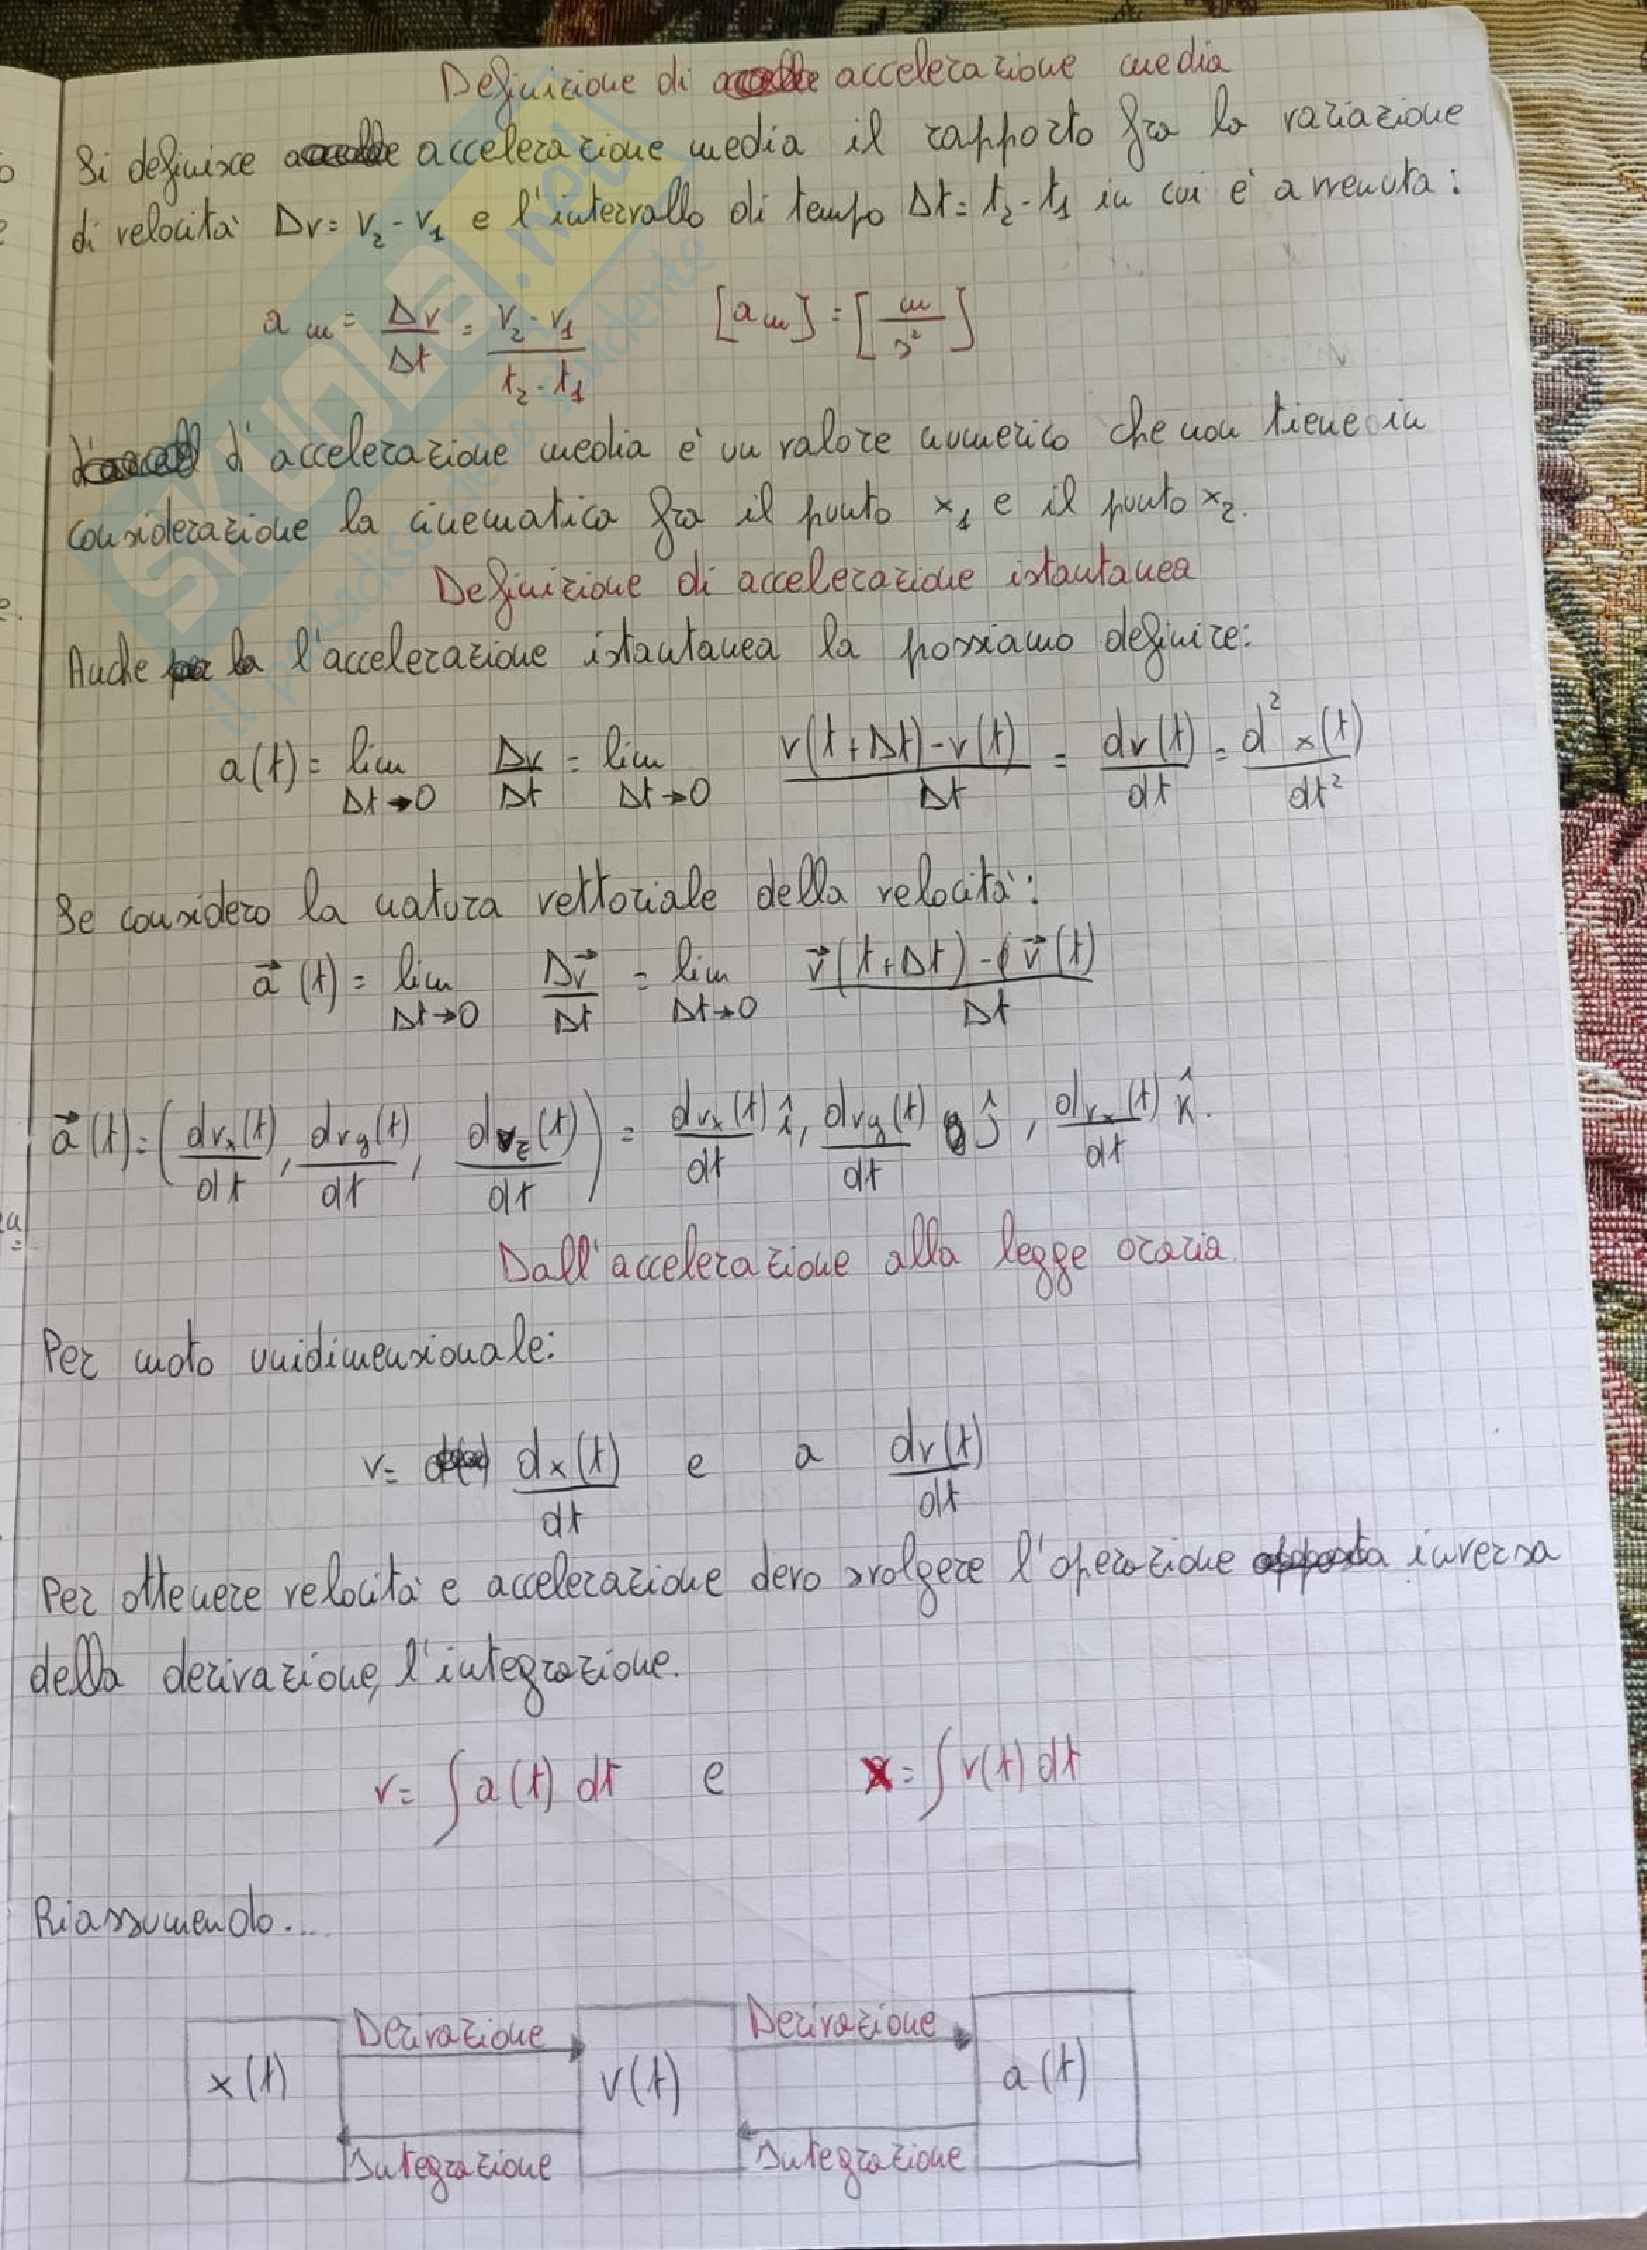 Definizione di accelerazione media
Si definisce accelerazione media il rapporto fra la variazione
di velocità Δv = v₂ - v₁ e l'intervallo di tempo Δt = t₂ - t₁ in cui è avvenuta:
a m = Δv/Δt = (v₂ - v₁)/(t₂ - t₁) [a m] = [m/s²]
L'accelerazione media è un valore numerico che non tiene in
considerazione la cinematica fra il punto x₁ e il punto x₂.
Definizione di accelerazione istantanea
Anche l'accelerazione istantanea la possiamo definire:
a(t) = lim Δt→0 Δv/Δt = lim Δt→0 (v(t+Δt) - v(t))/Δt = dv(t)/dt = d²x(t)/dt²
Se considero la natura vettoriale della velocità:
a⃗(t) = lim Δt→0 Δv⃗/Δt = lim Δt→0 (v⃗(t+Δt) - v⃗(t))/Δt
a⃗(t) = (dvₓ(t)/dt, dv_y(t)/dt, dv_z(t)/dt) = dvₓ(t)/dt î, dv_y(t)/dt ĵ, dvₓ(t)/dt k̂.
Dall'accelerazione alla legge oraria
Per moto unidimensionale:
v = dx(t)/dt e a dv(t)/dt
Per ottenere velocità e accelerazione devo svolgere l'operazione inversa
della derivazione, l'integrazione.
v = ∫a(t) dt e x = ∫v(t) dt
Riassumendo....
Derivazione Derivazione
x(t) v(t) a(t)
Integrazione Integrazione
SKUOLA.net
il paradiso dello studente